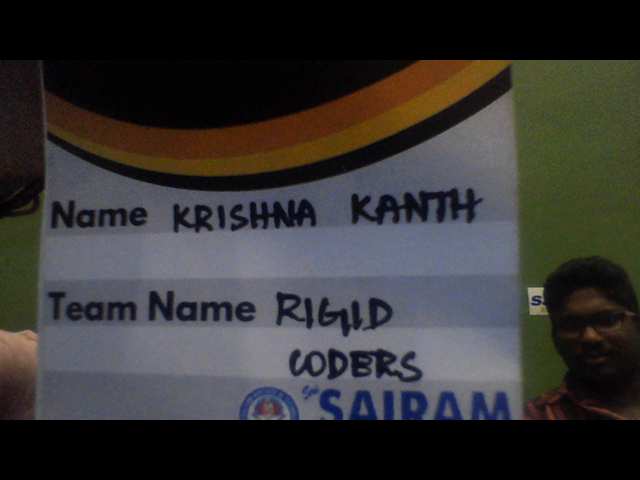 Name KRISHNA KANTH
Team Name RIGID
CODERS
Sri SAIRAM